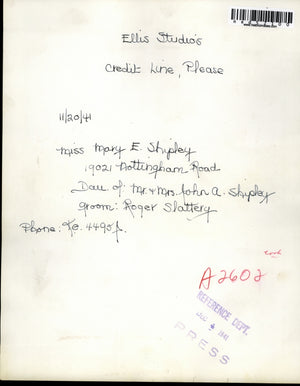 Ellis Studio's
Credit Line, Please
11/20/41
Miss Mary E. Shipley
19021 Nottingham Road
Dau. of: Mr. + Mrs. John A. Shipley
Groom: Roger Slattery
Phone: Ke. 4490J.
A2602
REFERENCE DEPT.
1941
PRESS